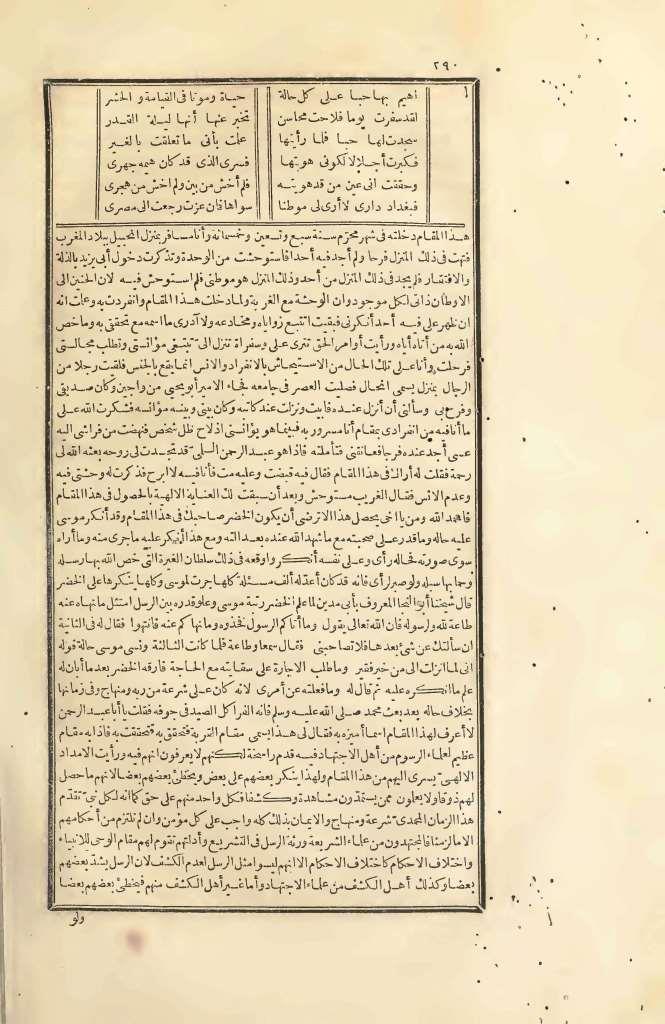 ٢٩٠
أهيم بها حبا على كل حالة حياة وموتا فى القيامة والحشر
لقد سفرت يوما فلاحت محاسن تخبر عنها أنها ليلة القدر
سجدت لها حبا فلما رأيتها علمت بأنى ما تعلقت بالغير
فكبرت أجلالا لكونى هويتها فسرى الذى قد كان هيمه جهرى
وحققت انى عين من قد هويته فلم أخش من بين ولم أخش من هجرى
فبغداد دارى لا أرى لى موطنا سواها فان عزت رجعت الى مصرى
هذا المقام دخلته فى شهر محرم سنة سبع وتسعين وخمسمائة وأنا مسافر بمنزل ببلاد المغرب
فتهت فى ذلك المنزل فرحا ولم أجد فيه أحدا فاستوحشت من الوحدة وتذكرت دخول أبى يزيد بالذلة
والافتقار فلم يجد فى ذلك المنزل من أحد وذلك المنزل هو موطنى فلم استوحش فيه لان الحنين الى
الاوطان ذاتى لكل موجود وان الوحشة مع الغربة ولما دخلت هذا المقام وانفردت به وعلمت انه
ان ظهر على فيه أحد أنكرنى فبقيت اتتبع زواياه ومخادعه ولا أدرى ما اسمه مع تحققى به وما خص
الله به من أتاه أياه ورأيت أوامر الحق تترى على وسفراؤه تنزل الى تبتغى مؤانستى وتطلب مجالستى
فرحلت وأنا على تلك الحال من الاستيحاش بالانفراد والانس انما يقع بالجنس فلقيت رجلا من
الرجال بمنزل يسمى انحال فصليت العصر فى جامعه فجاء الامير أبو يحيى بن واجتين وكان صديقى
وفرح بى وسألنى أن أنزل عنده فأبيت ونزلت عند كاتبه وكان بينى وبينه مؤانسة فشكرت الله على
ما أنا فيه من انفرادى بمقام أنا مسرور به فبينما هو يؤانسنى اذ لاح ظل شخص فنهضت من فراشى اليه
عسى أجد عنده فرجا فعانقنى فتأملته فاذا هو عبد الرحمن السلمى قد تجسدت لى روحه بعثه الله لى
رحمة فقلت له أراك فى هذا المقام فقال فيه قبضت وعليه مت فأنا فيه لا ابرح فذكرت له وحشتى فيه
وعدم الانس فقال الغريب مستوحش وبعد أن سبقت لك العناية الالهية بالحصول فى هذا المقام
فاحمد الله ومن يا أخى يحصل هذا ألا ترضى أن يكون الخضر صاحبك فى هذا المقام وقد أنكر موسى
عليه حاله وما قدر على صحبته مع ما شهد الله عنده بعدالته ومع هذا أنكر عليه ما جرى منه وما أراه
سوى صورته فحاله رأى وعلى نفسه أنكر وأوقعه فى ذلك سلطان الغيرة التى خص الله بها رسله
ولو صبر لرأى فانه قد كان أعد له ألف مسئلة كلها جرت لموسى وكلها ينكرها على الخضر
قال شيخنا أبو النجا المعروف بأبى مدين لما علم الخضر رتبة موسى وعلو قدره بين الرسل امتثل ما نهاه عنه
طاعة لله ولرسوله فان الله تعالى يقول وما أتاكم الرسول فخذوه وما نهاكم عنه فانتهوا فقال له فى الثانية
ان سألتك عن شئ بعدها فلا تصاحبنى فقال سمعا وطاعة فلما كانت الثالثة ونسى موسى حالة قوله
انى لما أنزلت الى من خير فقير وما طلب الاجارة على سقايته مع الحاجة فارقه الخضر بعد ما أبان له
علم ما أنكره عليه ثم قال له وما فعلته عن أمرى لانه كان على شرعة من ربه ومنهاج وفى زمانها
بخلاف حاله بعد بعث محمد صلى الله عليه وسلم فانه الفرا كل الصيد فى جوفه فقلت يا أبا عبد الرحمن
لا أعرف لهذا المقام اسما أميزه به فقال لى هذا يسمى مقام القربة فتحقق به فتحققت به فاذا به مقام
عظيم لعلماء الرسوم من أهل الاجتهاد فيه قدم راسخة لكنهم لا يعرفون انهم فيه ورأيت الامداد
الالهى يسرى اليهم من هذا المقام ولهذا ينكر بعضهم على بعض ويخطئ بعضهم بعضا لانهم ما حصل
لهم ذوقا ولا يعلمون ممن يستمدون مشاهدة وكشفا فكل واحد منهم على حق كما انه لكل نبى تقدم
هذا الزمان المحمدى شرعة ومنهاج والايمان بذلك كله واجب على كل مؤمن وان لم نلتزم من أحكامهم
الا ما لزمنا فالمجتهدون من علماء الشريعة ورثة الرسل فى التشريع وأدلتهم تقوم لهم مقام الوحى للانبياء
واختلاف الاحكام كاختلاف الاحكام الا انهم ليسوا مثل الرسل لعدم الكشف لان الرسل يشد بعضهم
بعضا وكذلك أهل الكشف من علماء الاجتهاد وأما غير أهل الكشف منهم فيخطئ بعضهم بعضا
ولو